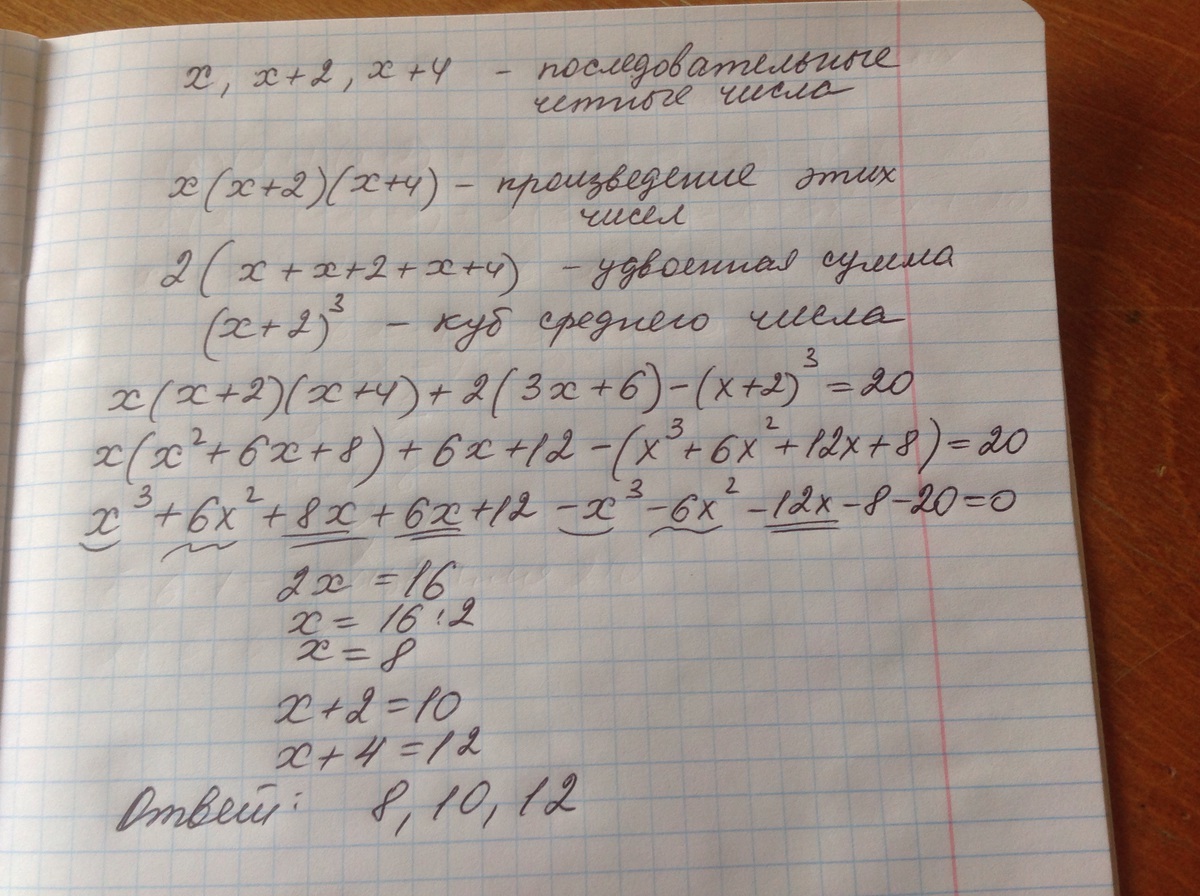 x, x+2, x+4 - последовательные
четные числа
x(x+2)(x+4) - произведение этих
чисел
2(x+x+2+x+4) - удвоенная сумма
(x+2)³ - куб среднего числа
x(x+2)(x+4)+2(3x+6)-(x+2)³=20
x(x²+6x+8)+6x+12-(x³+6x²+12x+8)=20
x³+6x²+8x+6x+12-x³-6x²-12x-8-20=0
2x=16
x=16:2
x=8
x+2=10
x+4=12
Ответ: 8, 10, 12